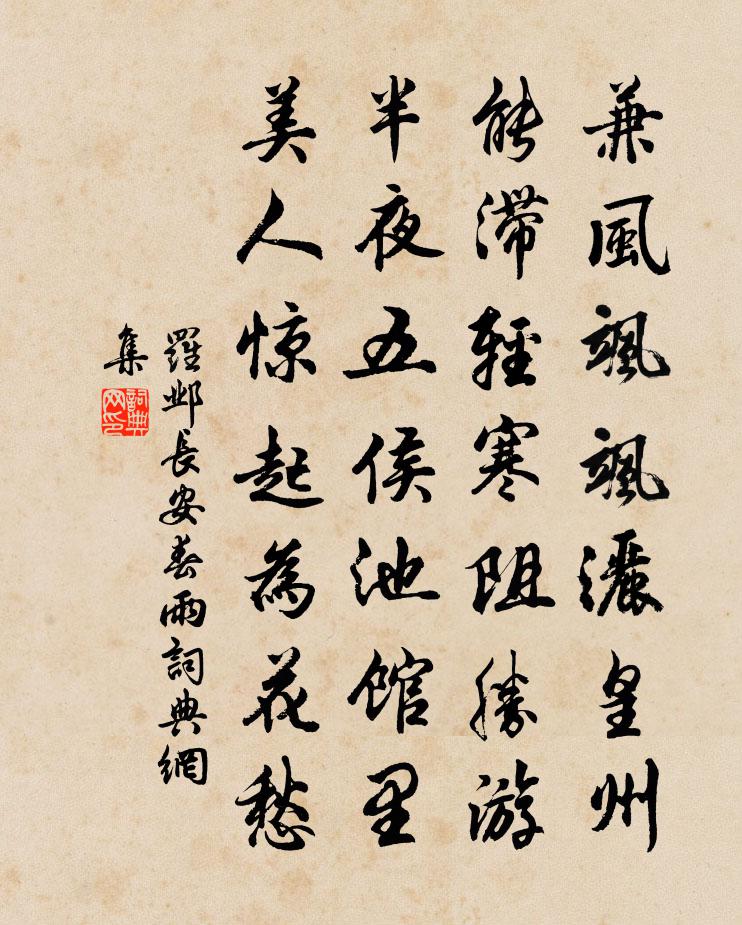 兼風颯颯灑皇州
能滯輕寒阻勝游
半夜五侯池館里
美人惊起為花愁
羅邺長安春雨詞典網
集
詞典
网印